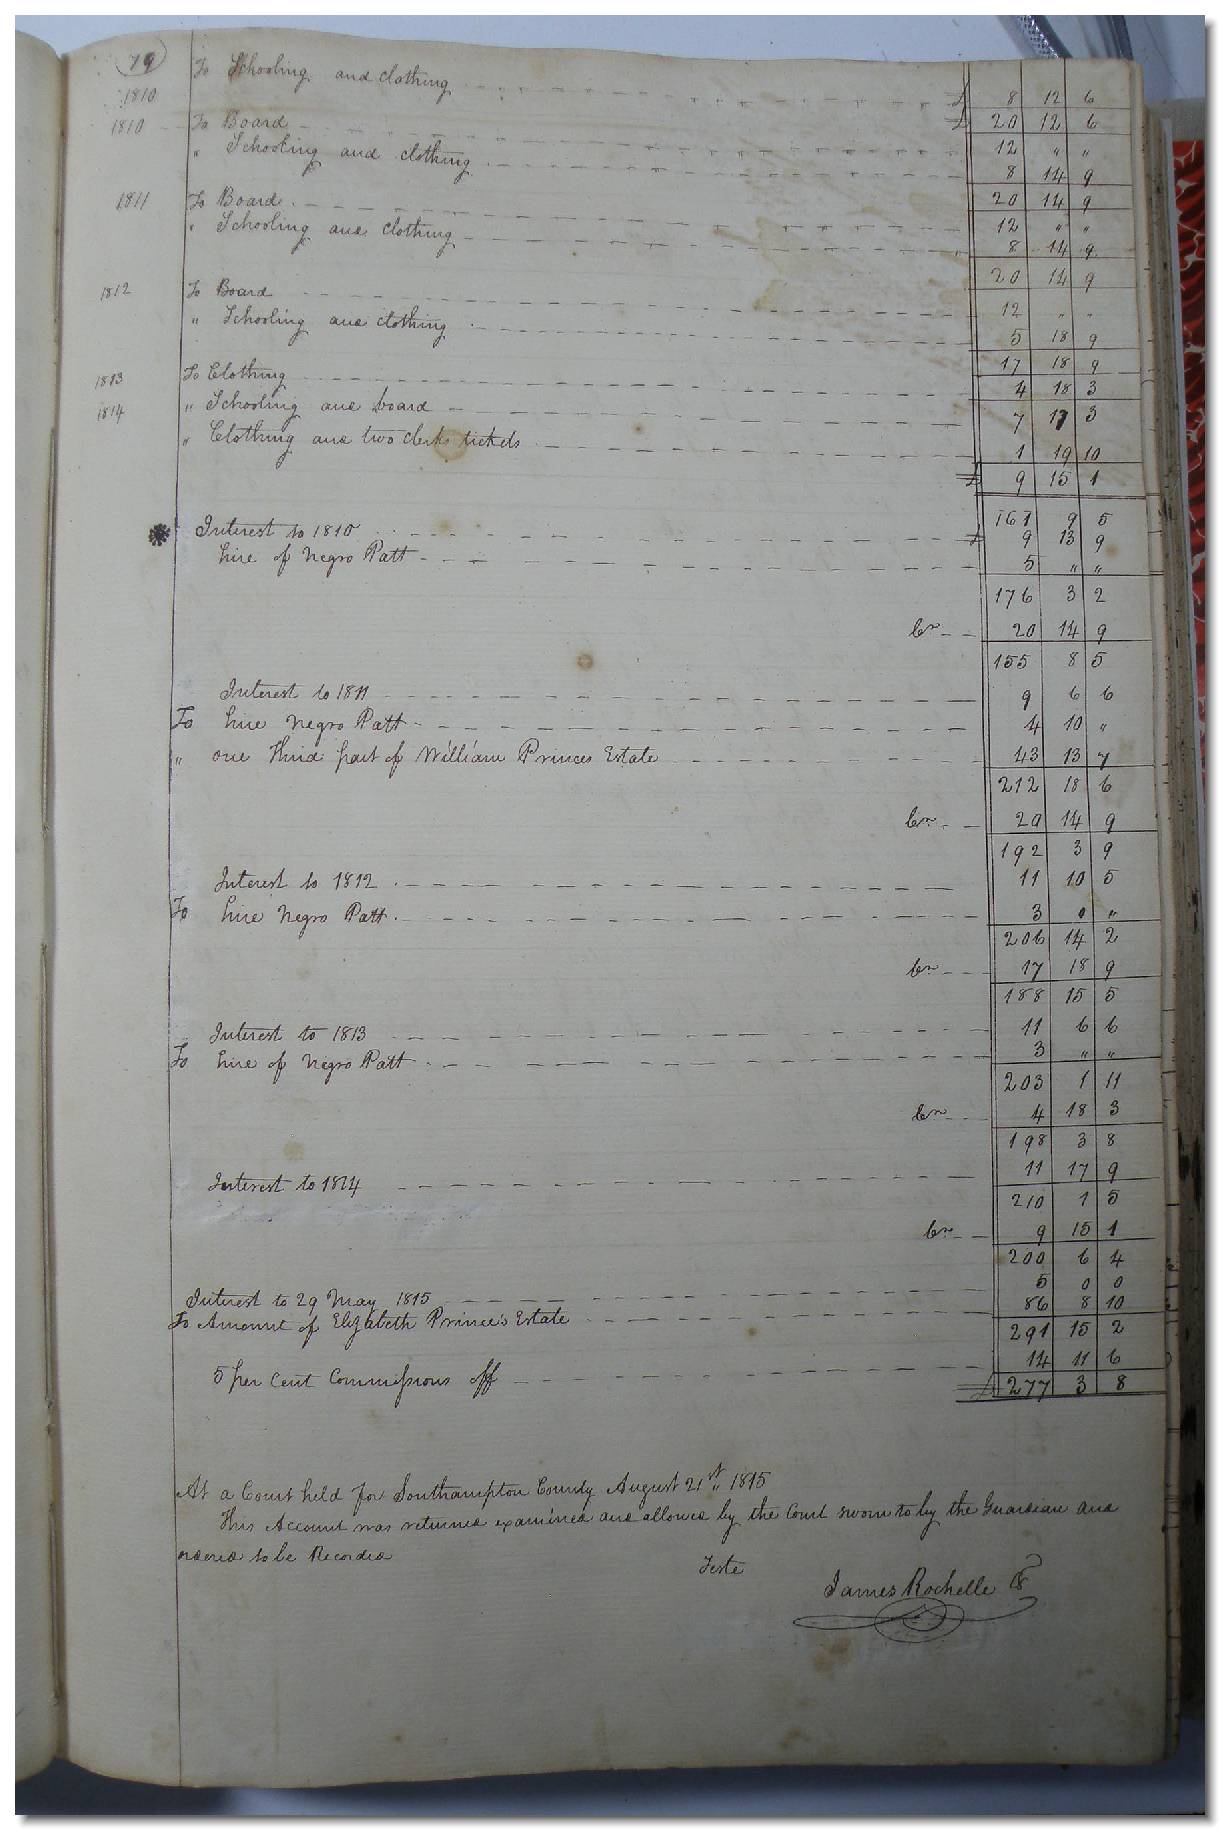 79
To Schooling and clothing £ 8 12 6
1810
£ 20 12 6
1810 To Board 12 " "
" Schooling and clothing 8 14 9
20 14 9
1811 To Board 12 " "
" Schooling and clothing 8 14 9
20 14 9
1812 To Board 12 " "
" Schooling and clothing 5 18 9
17 18 9
1813 To Clothing 4 18 3
1814 " Schooling and board 7 17 3
" Clothing and two clerks tickets 1 19 10
£ 9 15 1
161 9 5
Interest to 1810 £ 9 13 9
hire of Negro Patt 5 " "
176 3 2
Cr 20 14 9
155 8 5
Interest to 1811 9 6 6
To hire Negro Patt 4 10 "
" one third part of William Princes Estate 43 13 7
212 18 6
Cr 20 14 9
192 3 9
Interest to 1812 11 10 5
To hire Negro Patt 3 0 "
206 14 2
Cr 17 18 9
188 15 5
Interest to 1813 11 6 6
To hire of Negro Patt 3 " "
203 1 11
Cr 4 18 3
198 3 8
11 17 9
Interest to 1814
210 1 5
Cr 9 15 1
200 6 4
Interest to 29 May 1815 5 0 0
To Amount of Elizabeth Prince's Estate 86 8 10
291 15 2
5 per Cent Commissions off 14 11 6
£ 277 3 8
At a Court held for Southampton County August 21st 1815
This Account was returned examined and allowed by the Court sworn to by the Guardian and
ordered to be Recorded
Teste
James Rochelle